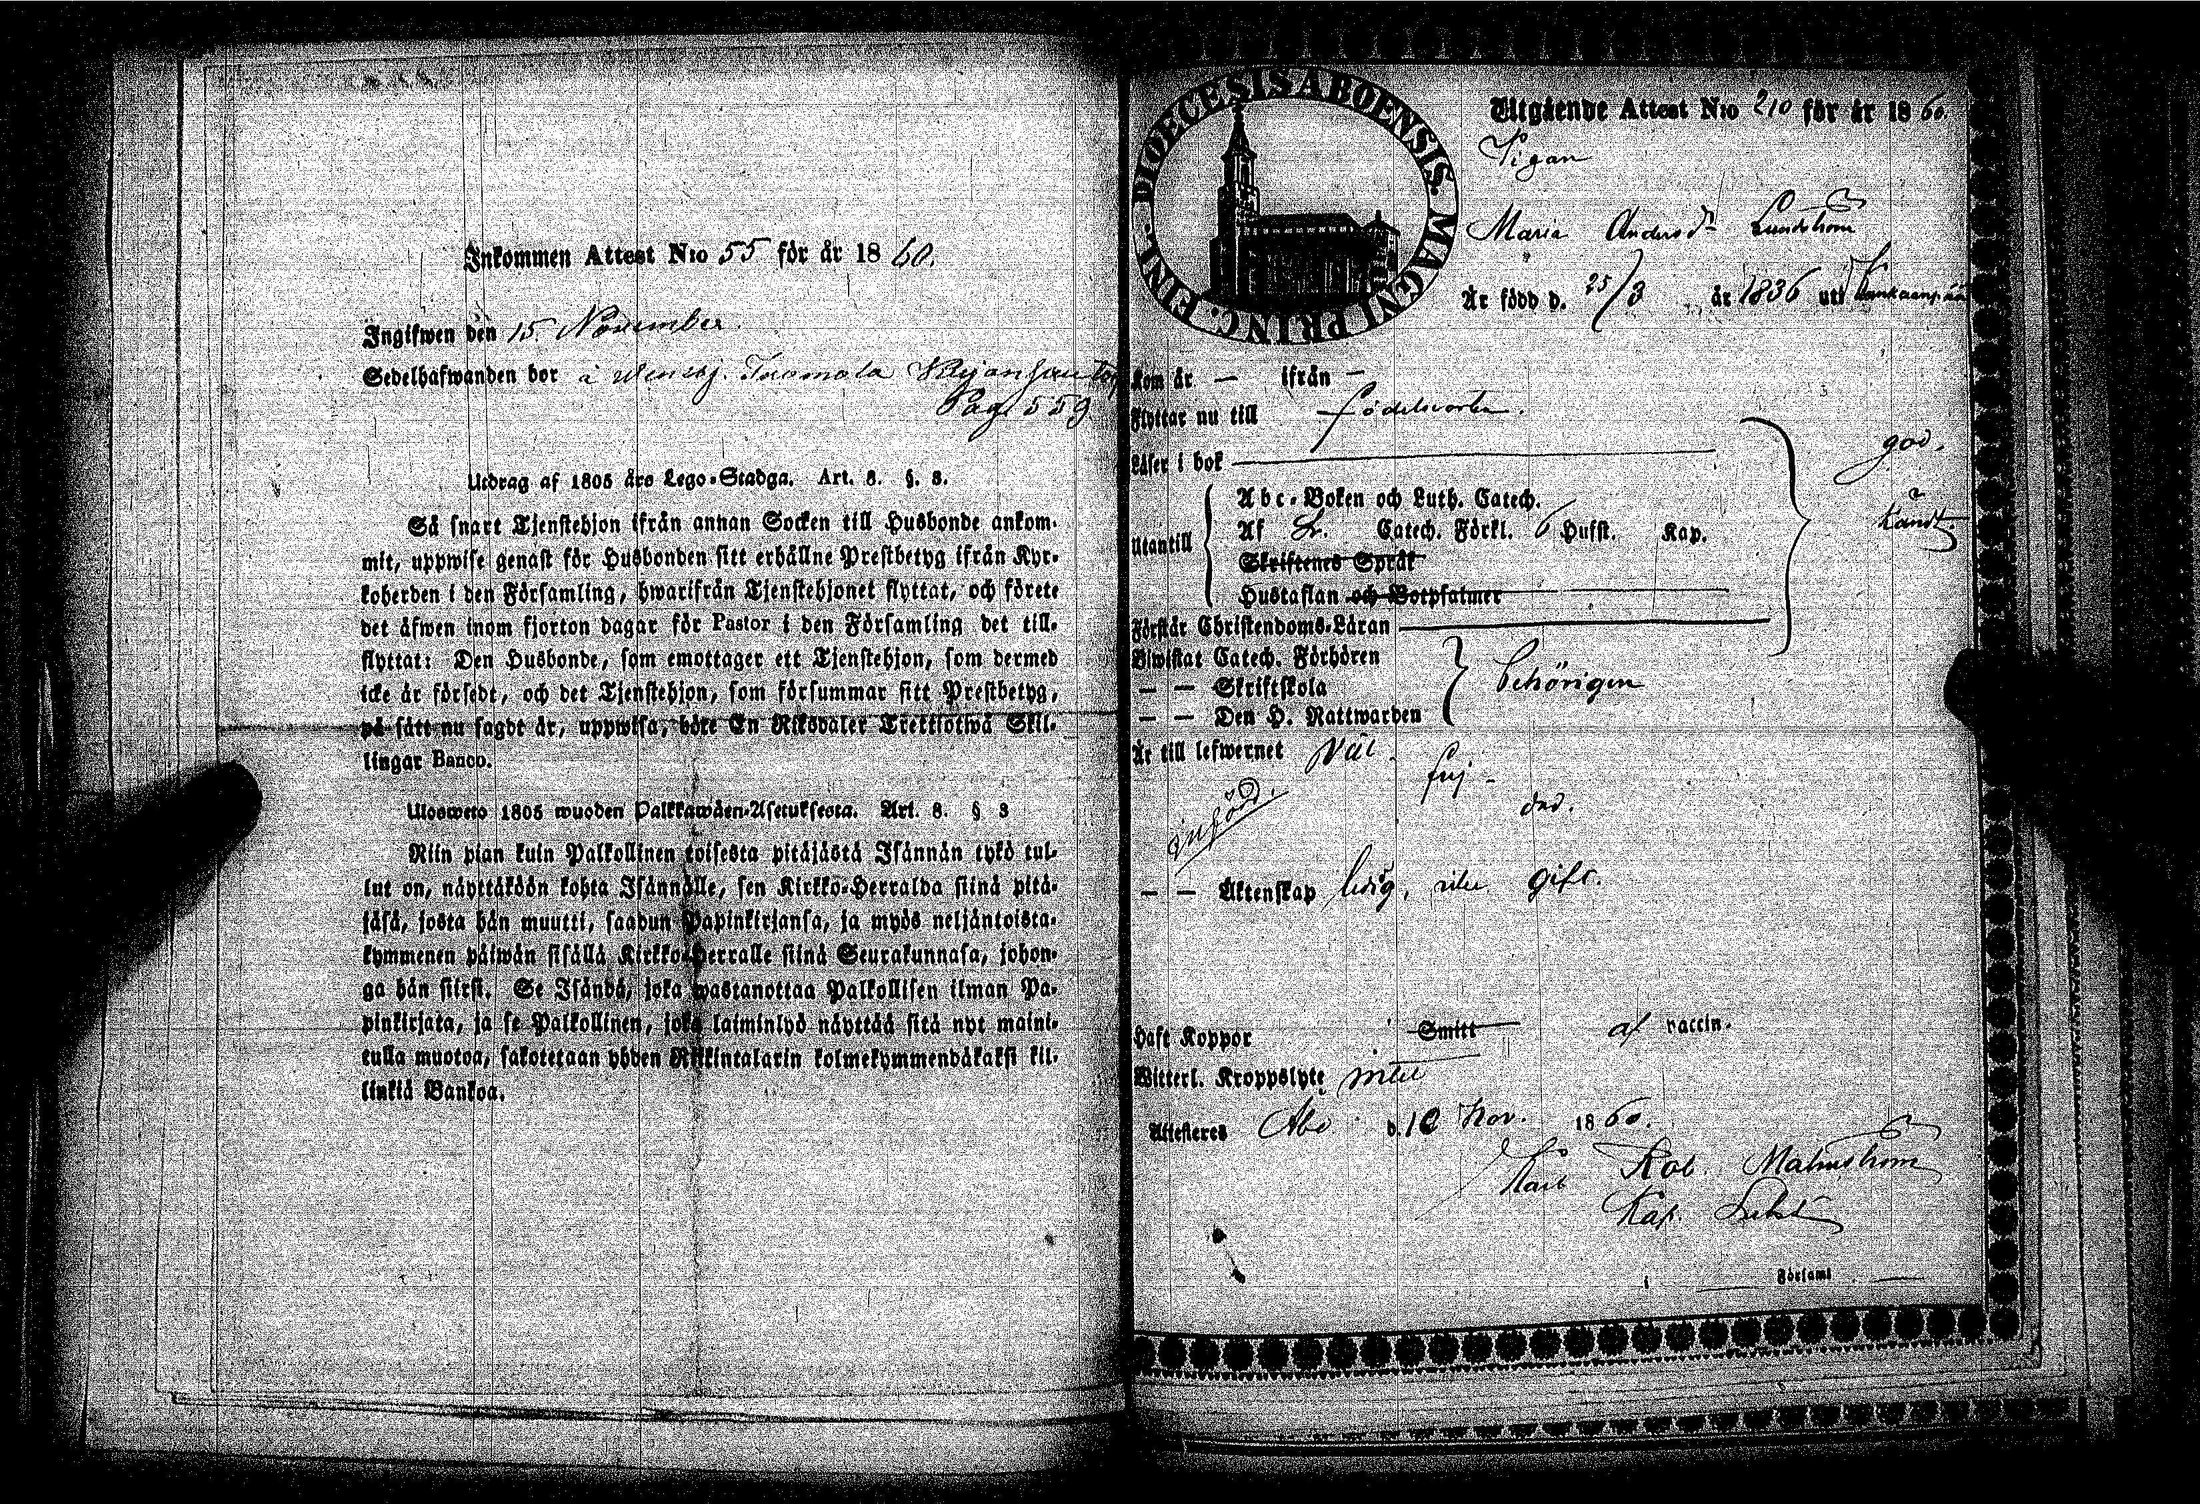 Inkommen Attest N:o 55 för år 1860.
Ingifwen den 15 November.
Sedelhafwanden bor å
Pag. 559
Utdrag af 1805 års Lego-Stadga. Art. 8. §. 3.
Så snart Tjenstehjon ifrån annan Socken till Husbonde ankom-
mit, uppwise genast för Husbonden sitt erhållne Prestbetyg ifrån Kyr-
koherden i den Församling, hwarifrån Tjenstehjonet flyttat, och förete
det äfwen inom fjorton dagar för Pastor i den Församling det till-
flyttat: Den Husbonde, som emottager ett Tjenstehjon, som dermed
icke är försedt, och det Tjenstehjon, som försummar sitt Prestbetyg,
på sätt nu sagdt är, uppwisa, böte En Riksdaler Trettiotwå Skil-
lingar Banco.
Ulosweto 1805 wuoden Palkkawäen-Asetuksesta. Art. 8. § 3
Niin pian kuin Palkollinen toisesta pitäjästä Isännän tykö tul-
lut on, näyttäköön kohta Isännälle, sen Kirkko-Herralda siinä pitä-
jäsä, josta hän muutti, saadun Papinkirjansa, ja myös neljäntoista-
kymmenen päiwän sisällä Kirkko-Herralle siinä Seurakunnasa, johon-
ga hän siirsi. Se Isändä, joka wastanottaa Palkollisen ilman Pa-
pinkirjata, ja se Palkollinen, joka laiminlyö näyttää sitä nyt maini-
tulla muotoa, sakotetaan yhden Riikintalarin kolmekymmendäkaksi kil-
linkiä Bankoa.
DIOECESIS ABOENSIS. MAGNI PRINC. FINL.
Utgående Attest N:o 210 för år 1860.
Pigan
Maria Andersdr Lundström
Är född d. 25/3 år 1836 uti Kankaanpää
Kom år — ifrån —
Flyttar nu till födelseorten.
Läser i bok
god.
Utantill
Abc-Boken och Luth. Catech.
Af Catech. Förkl. 6 Hufst. Kap.
känd.
Skriftenes Språk
Hustaflan och Botpsalmer
Förstår Christendoms-Läran
Biwistat Catech. Förhören
— — Skriftskola
behörigen
— — Den H. Nattwarden
Är till lefwernet Väl
frej-
dad.
införd.
— — Äktenskap ledig, icke gift.
Haft Koppor Smitt- af vaccin.
Witterl. Kroppslyte intet
Attesteres Åbo d. 10 Nov. 1860.
Karl Rob. Malmström
Kap.
Förlamt